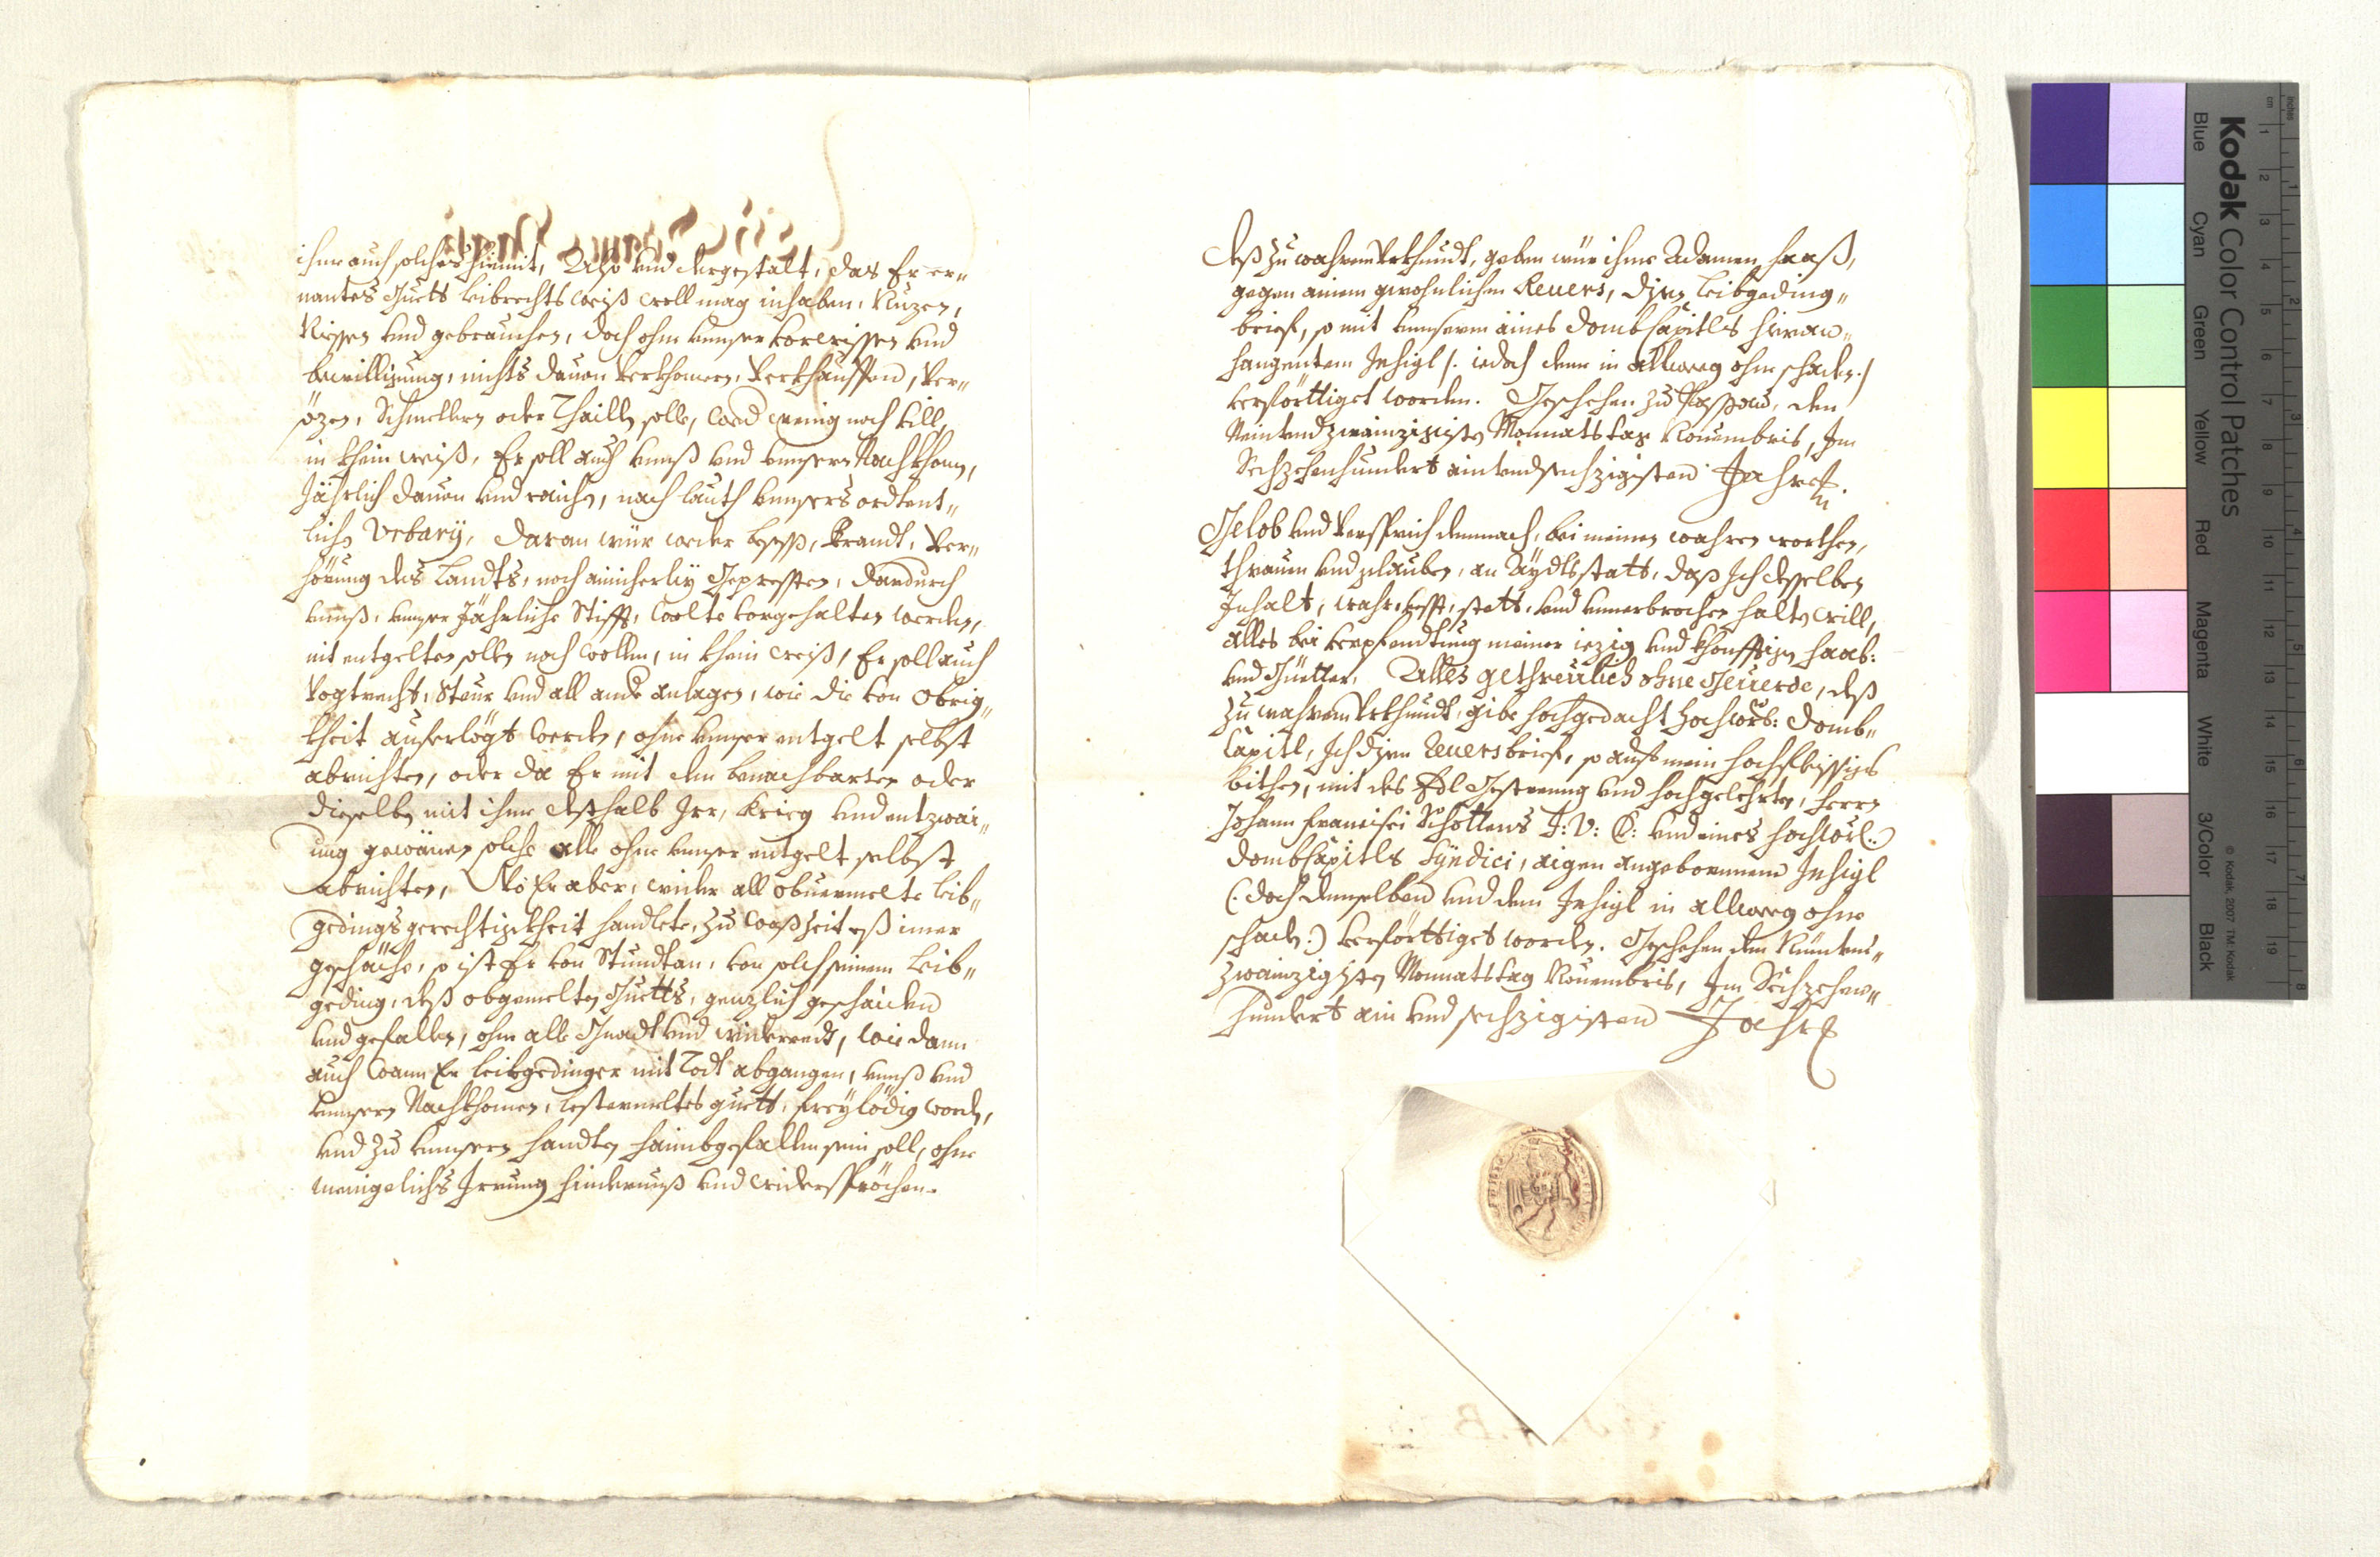 ihme auch solches hiemit, Also vnd dergestalt, das Er er„
nantes Guets leibrechts weiß woll mag inhaben, Nuzen,
Niessen vnd gebrauchen, doch ohne vnnser vorwissen vnd
bewilligung, nichts dauon verkhomern, verkhauffen, ver„
sözen, Schmellern oder Thaillen solle, weder wenig noch vill,
in khein weiß, Er soll auch vnnß vnd vnnsern Nachkhomen,
Jährlich dauon vnd raichen, nach lauth vnnsers ordent„
lichen Vrbarÿ, daran wür weder bysß, Brandt, Ver„
hörung des Landts, noch ainicherleÿ Gepressten, dardurch
vnnß, vnnser Jährliche Stifft, wolte vorgehalten werden,
nit entgelten sollen noch wollen, in khein weiß, Er soll auch
Vogtrecht, Steur vnd all ande anlagen, wie die von Obrig„
kheit auferlögt werden, ohne vnnser entgelt selbst
abrichten, oder da Er mit den benachbarten oder
dieselben mit ihme desthalb Irr, Krieg vnd entzwai„
ung gewünen solche alle ohne vnnser entgelt selbst
abrichten, Wo Er aber, wider all obuermelte leib„
gedings gerechtigkheit handlete, zu waß zeit eß imer
geschäche, so ist Er von Stundt an, von solch seinem Leib„
geding, deß obgemelten Guetts, genzlich geschaiden
vnd gefallen, ohne alle Gnadt vnd widerredt, wie dann
auch wann Er leibgedinger mit Todt abgangen, vnnß vnd
vnnsern Nachkhomen, bestermeltes guett, freÿ lödig worden,
vnd zu vnnsern handten haimbgefallen sein soll, ohne
menigelichs Irrung hindernuß vnd widersprächen.
Deß zu wahrem Vrkhundt, geben wür ihme Adamen Haaß,
gegen ainem gewohnlichen Reuers, disen Leibgeding„
brief, so mit vnnserm aines Dombcapitls hieran„
hangentem Insigl /. iedoch dem in allweeg ohne schaden./
verförttiget worden. Geschehen zu Passau, den
Neinvndzwainzigisten Monnats tag Nouembris, Im
Sechzehenhundert ainvndsechzigisten Jahre.
Gelob vnd versprich demnach, bei meinen wahren worthen,
thrauen vnd glauben, an Aÿdtsstatt, daß Ich desselben
Inhalt, wahr, vesst, stett, vnd vnuerbrochen halten will,
alles bei verpfendtung meiner iezig vnd khonfftigen haab:
vnd Güetter. Alles gethreülich ohne Geuerde, deß
zu wahrem Vrkhundt, gibe hochgedacht Hochwürd: Domb„
Capitl, Ich disen Reuersbrief, so auf mein hochfleissigs
bitten, mit des Edl Gestreng vnd hochgelehrten, Herrn
Johann Francisci Schottens J: V: C: vnd eines hochwürd:
Dombcapitls Sÿndici, aigen angebornnem Insigl
(: doch demselben vnd dem Insigl in allweeg ohne
schaden :) verförttiget worden. Geschehen den Neunvnd„
zwainzigisten Monnatstag Nouembris, Im Sechzehen„
hundert ain vnd sechzigisten Jahre
Kodak Color Control Patches
Blue Cyan Green Yellow Red Magenta White 3/Color Black
© Kodak, 2007 TM: Kodak
inches 1 2 3 4 5 6 7 8
cm 1 2 3 4 5 6 7 8 9 10 11 12 13 14 15 16 17 18 19